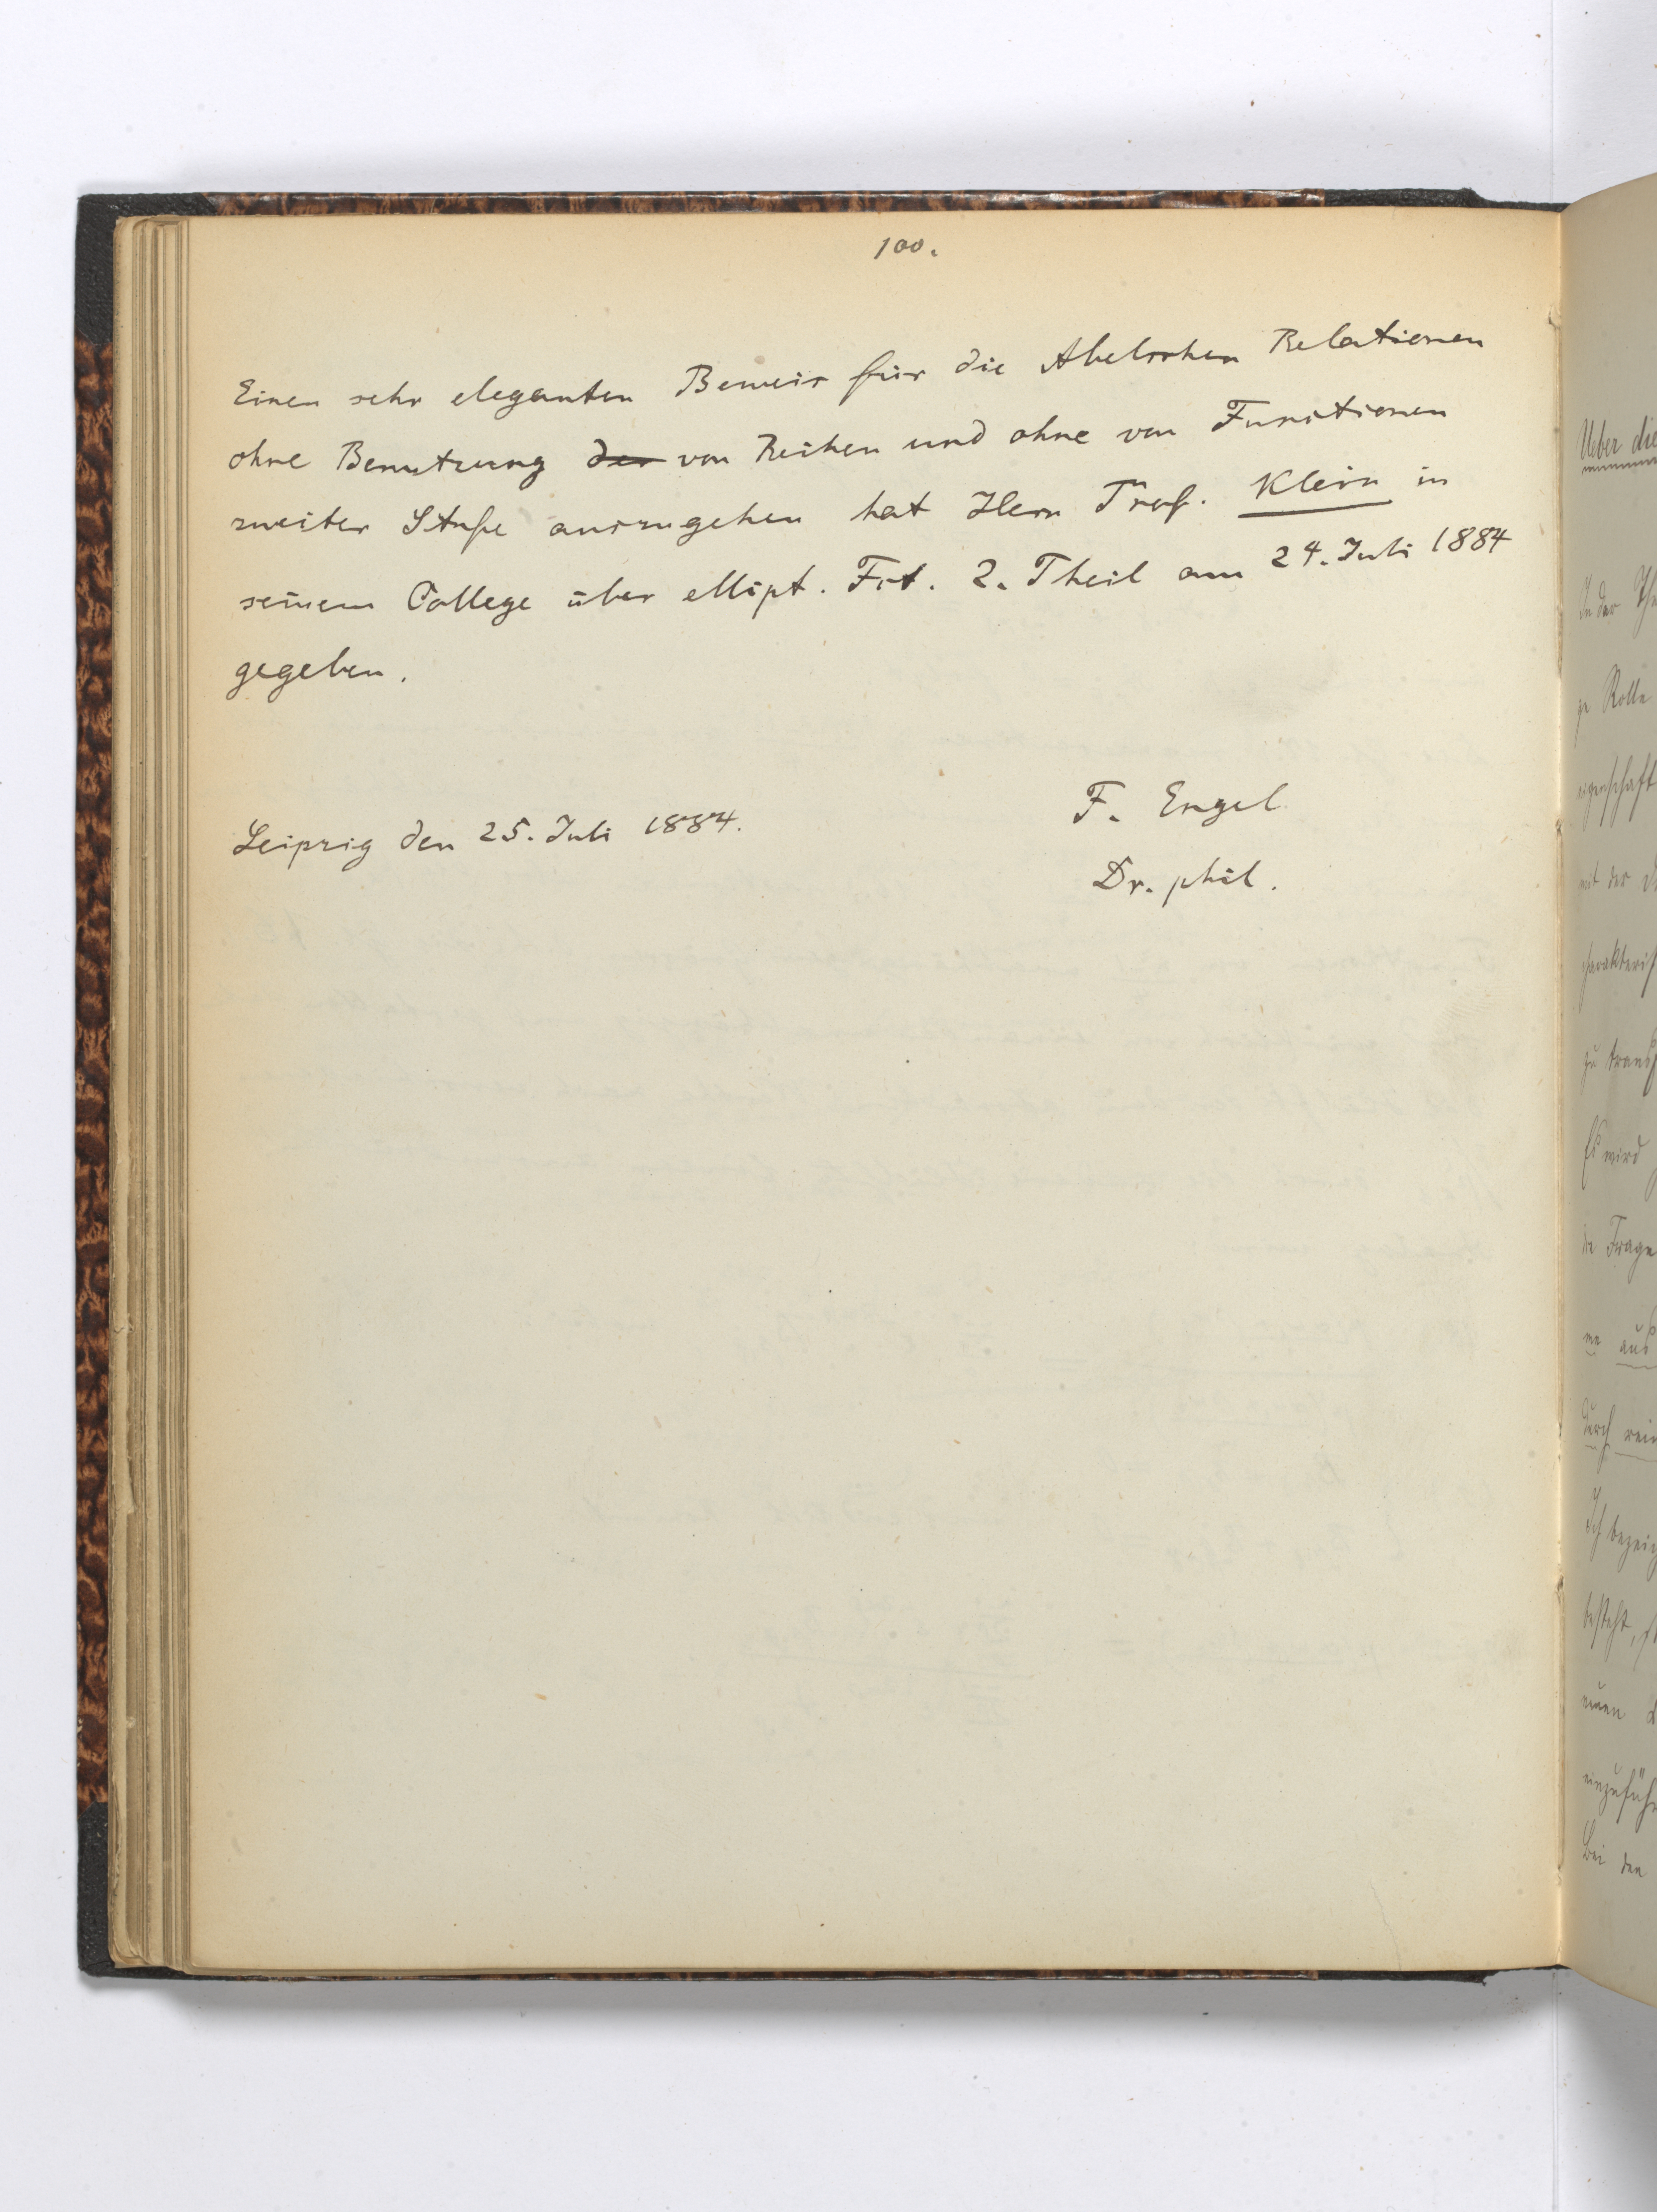 100.
Einen sehr eleganten Beweis für die Abelschen Relationen
ohne Benutzung der von Reihen und ohne von Functionen
zweiter Stufe auszugehen hat Herr Prof. Klein in
seinem College über ellipt. Fct. 2. Theil am 24. Juli 1884
gegeben.
Leipzig den 25. Juli 1884.
F. Engel
Dr. phil.
Ueber die
In der
Rolle
eigenschaft
mit der
Es wird
die Frage
aus
durch
neuen
Bei den